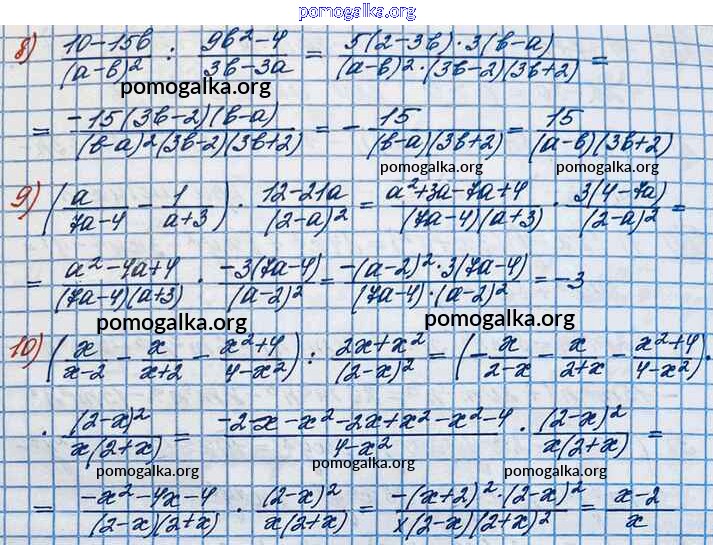 pomogalka.org
8) \frac{10-15b}{(a-b)^2} : \frac{9b^2-4}{3b-3a} = \frac{5(2-3b)\cdot 3(b-a)}{(a-b)^2\cdot(3b-2)(3b+2)} =
pomogalka.org
= \frac{-15(3b-2)(b-a)}{(b-a)^2(3b-2)(3b+2)} = -\frac{15}{(b-a)(3b+2)} = \frac{15}{(a-b)(3b+2)}
pomogalka.org pomogalka.org
9) (\frac{a}{7a-4} - \frac{1}{a+3}) \cdot \frac{12-21a}{(2-a)^2} = \frac{a^2+3a-7a+4}{(7a-4)(a+3)} \cdot \frac{3(4-7a)}{(2-a)^2} =
= \frac{a^2-4a+4}{(7a-4)(a+3)} \cdot \frac{-3(7a-4)}{(a-2)^2} = \frac{-(a-2)^2\cdot 3(7a-4)}{(7a-4)\cdot(a-2)^2} = -3
pomogalka.org pomogalka.org
10) (\frac{x}{x-2} - \frac{x}{x+2} - \frac{x^2+4}{4-x^2}) : \frac{2x+x^2}{(2-x)^2} = (-\frac{x}{2-x} - \frac{x}{2+x} - \frac{x^2+4}{4-x^2}) \cdot
\cdot \frac{(2-x)^2}{x(2+x)} = \frac{-2-x-x^2-2x+x^2-x^2-4}{4-x^2} \cdot \frac{(2-x)^2}{x(2+x)} =
pomogalka.org pomogalka.org pomogalka.org
= \frac{-x^2-4x-4}{(2-x)(2+x)} \cdot \frac{(2-x)^2}{x(2+x)} = \frac{-(x+2)^2\cdot(2-x)^2}{x(2-x)(2+x)^2} = \frac{x-2}{x}